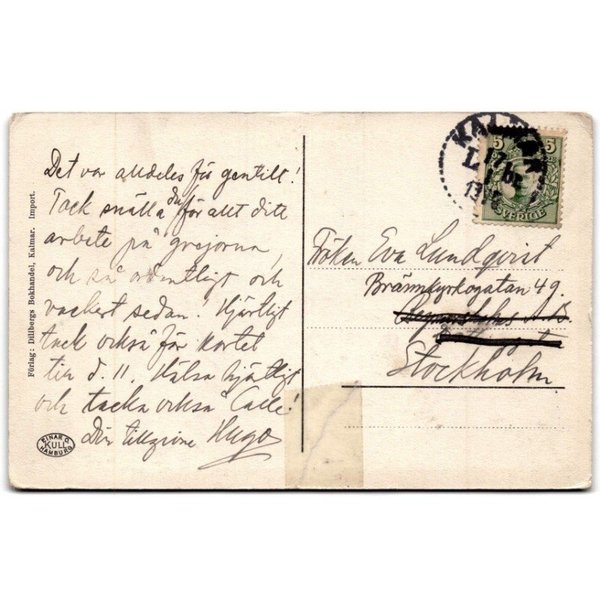 Det var alldeles för gentilt!
Tack snälla du för allt ditt
arbete på grejorna
och så ordentligt och
vackert sedan. Hjärtligt
tack också för kortet
till d. 11. Hälsa hjärtligt
och tacka också Calle!
Din tillgivne Hugo
Fröken Eva Lundqvist
Brännkyrkogatan 49.
Stockholm
KALMAR
5 5
SVERIGE
Förlag: Dillbergs Bokhandel, Kalmar. Import.
EINAR C.
KULL
HAMBURG